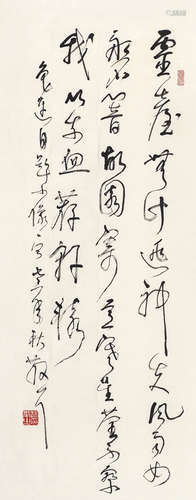 靈臺無計逃神矢風雨如
磐闇故園寄意寒星荃不察
我以我血薦軒轅
魯迅自題小像
年秋